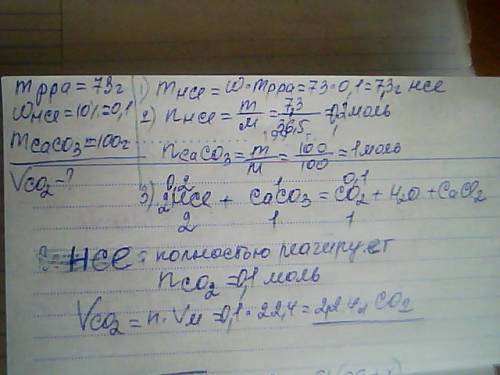 m рра = 73г
WHCl = 10% = 0,1
mCaCO3 = 100г
VCO2 - ?
1) mHCl = W · mрра = 73 · 0,1 = 7,3г HCl
2) nHCl = m/M = 7,3/36,5 = 0,2 моль
nCaCO3 = m/M = 100/100 = 1 моль
0,2 1 0,1
3) 2HCl + CaCO3 = CO2 + H2O + CaCl2
2 1 1
HCl полностью реагирует
nCO2 = 0,1 моль
VCO2 = n · Vм = 0,1 · 22,4 = 2,24л CO2